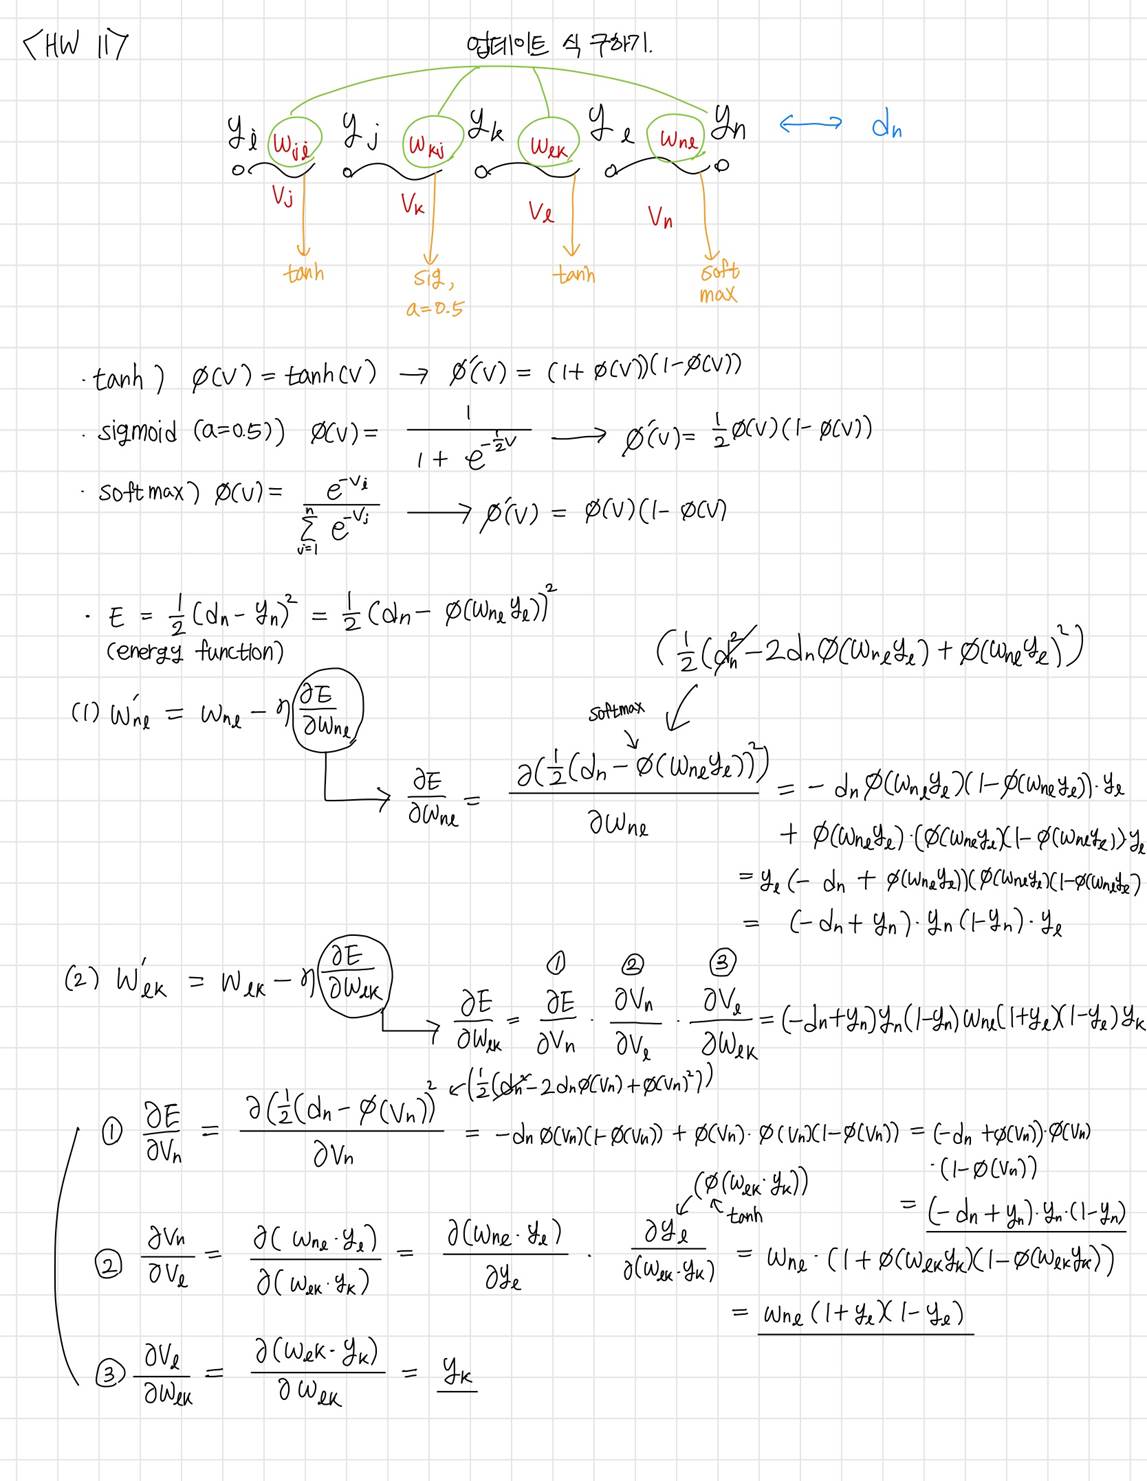 <HW 11>
업데이트 식 구하기.
y_i w_ji y_j w_kj y_k w_lk y_l w_nl y_n ⟷ d_n
V_j V_k V_l V_n
tanh sig, tanh soft
a=0.5 max
· tanh ) ø(V) = tanh(V) → ø'(V) = (1+ ø(V))(1-ø(V))
· sigmoid (a=0.5)) ø(V) = 1 / (1 + e^(-½V)) → ø'(V) = ½ø(V)(1- ø(V))
· softmax) ø(V) = e^(-V_i) / Σ_{j=1}^{n} e^(-V_j) → ø'(V) = ø(V)(1- ø(V)
· E = ½(d_n - y_n)² = ½(d_n - ø(w_nl y_l))²
(energy function)
(½(d_n² - 2d_nø(w_nl y_l) + ø(w_nl y_l)²))
(1) w'_nl = w_nl - η ∂E/∂w_nl
softmax
→ ∂E/∂w_nl = ∂(½(d_n - ø(w_nl y_l))²) / ∂w_nl = - d_n ø(w_nl y_l)(1-ø(w_nl y_l))·y_l
+ ø(w_nl y_l)·(ø(w_nl y_l)(1-ø(w_nl y_l))y_l
= y_l(- d_n + ø(w_nl y_l))(ø(w_nl y_l)(1-ø(w_nl y_l)
= (-d_n + y_n)·y_n(1-y_n)·y_l
(2) w'_lk = w_lk - η ∂E/∂w_lk
① ② ③
→ ∂E/∂w_lk = ∂E/∂V_n · ∂V_n/∂V_l · ∂V_l/∂w_lk = (-d_n+y_n)y_n(1-y_n)w_nl(1+y_l)(1-y_l)y_k
(½(d_n² - 2d_nø(V_n) + ø(V_n)²))
① ∂E/∂V_n = ∂(½(d_n - ø(V_n))² / ∂V_n = -d_n ø(V_n)(1-ø(V_n)) + ø(V_n)·ø(V_n)(1-ø(V_n)) = (-d_n +ø(V_n))·ø(V_n)
·(1-ø(V_n))
= (-d_n + y_n)·y_n·(1-y_n)
(ø(w_lk·y_k))
tanh
② ∂V_n/∂V_l = ∂(w_nl·y_l)/∂(w_lk·y_k) = ∂(w_nl·y_l)/∂y_l · ∂y_l/∂(w_lk·y_k) = w_nl·(1+ø(w_lk y_k)(1-ø(w_lk y_k))
= w_nl(1+y_l)(1-y_l)
③ ∂V_l/∂w_lk = ∂(w_lk·y_k)/∂w_lk = y_k